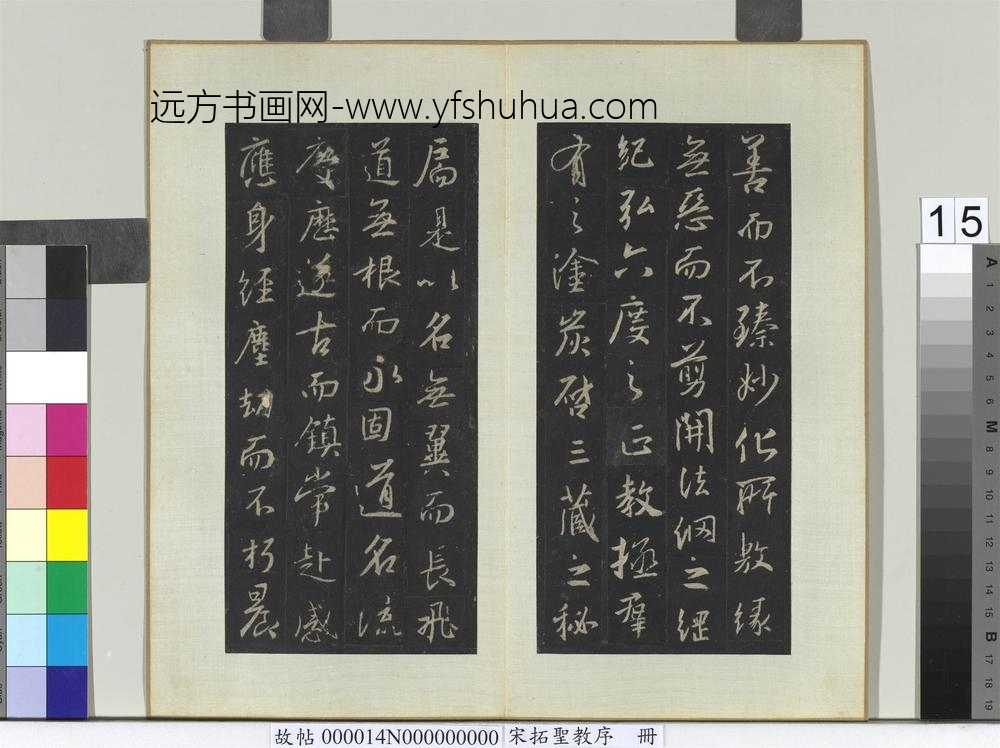 远方书画网-www.yfshuhua.com
善而不臻妙化所敷緣
無惡而不剪開法網之綱
紀弘六度之正教拯羣
有之塗炭啓三藏之秘
扃是以名無翼而長飛
道無根而永固道名流
慶歷遂古而鎮常赴感
應身經塵劫而不朽晨
15
A 1 2 3 4 5 6 M 8 9 10 11 12 13 14 15 B 17 18 19
故帖 000014N000000000 宋拓聖教序 冊